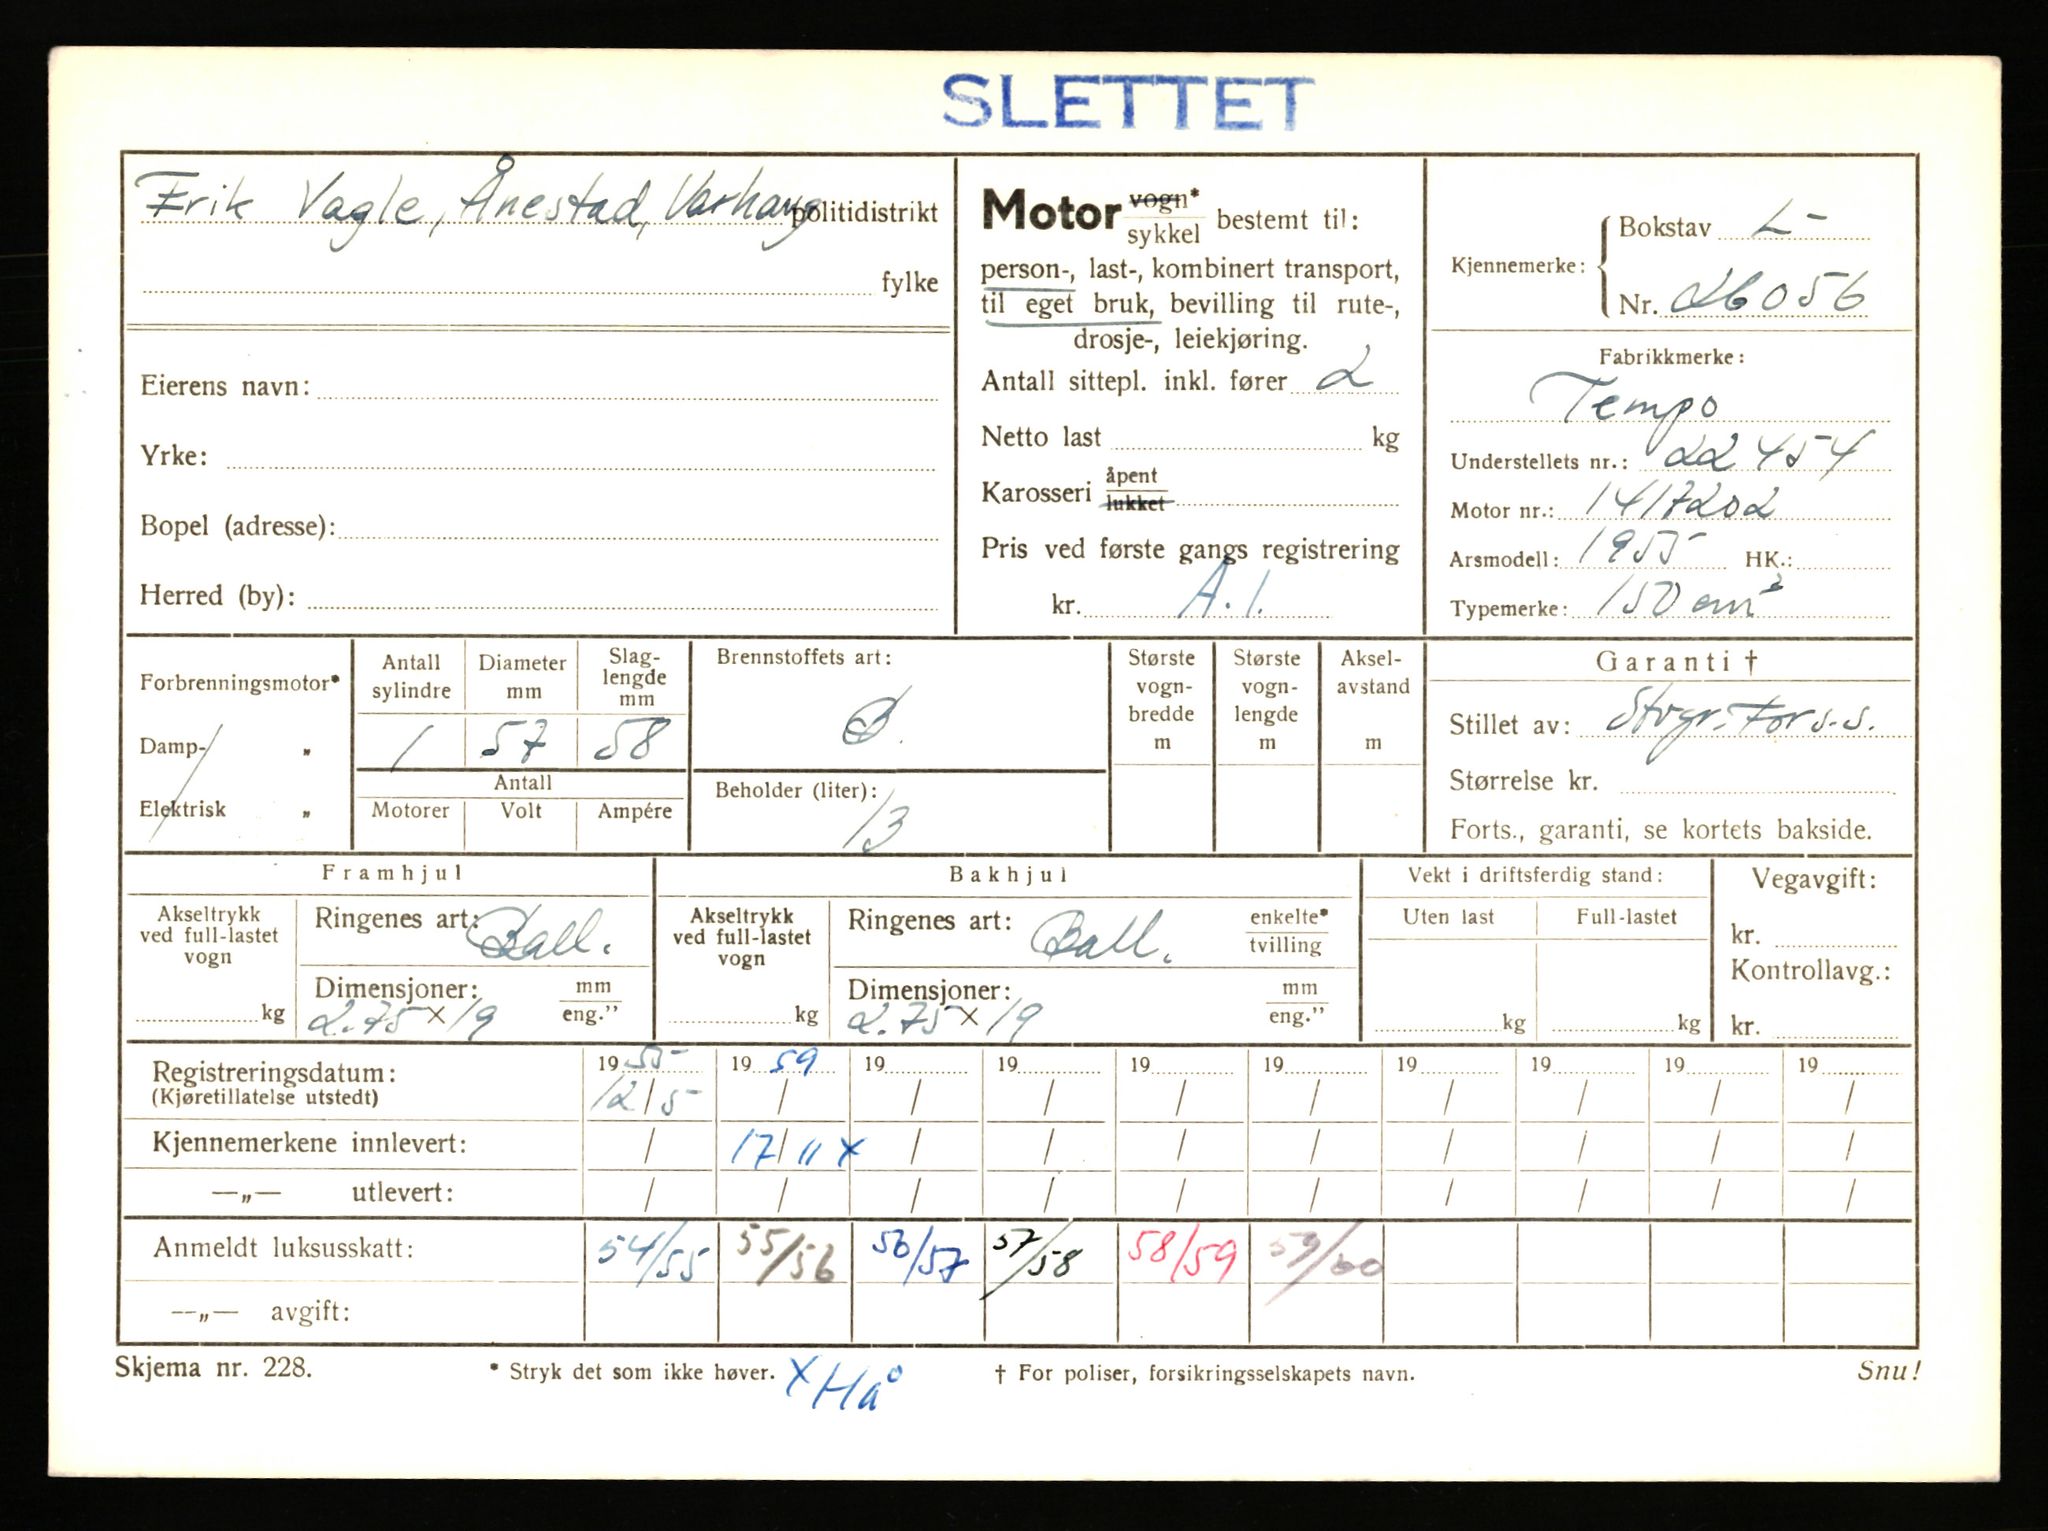 SLETTET
Erik Vagle, Ånestad, Varhaug politidistrikt
fylke
Eierens navn:
Yrke:
Bopel (adresse):
Herred (by):
Motor vogn* sykkel bestemt til:
person-, last-, kombinert transport,
til eget bruk, bevilling til rute-,
drosje-, leiekjøring.
Antall sittepl. inkl. fører 2
Netto last kg
Karosseri åpent lukket
Pris ved første gangs registrering
kr. A.1.
Kjennemerke: Bokstav L-
Nr. 26056
Fabrikkmerke:
Tempo
Understellets nr.: 22454
Motor nr.: 1417202
Årsmodell: 1955 HK.:
Typemerke: 150 cm³
Forbrenningsmotor*
Damp- „
Elektrisk „
Antall sylindre Diameter mm Slaglengde mm
1 57 58
Antall
Motorer Volt Ampére
Brennstoffets art:
B.
Beholder (liter):
13
Største vognbredde m
Største vognlengde m
Akselavstand m
Garanti †
Stillet av: Storgr. Fors.s.
Størrelse kr.
Forts., garanti, se kortets bakside.
Framhjul
Akseltrykk ved full-lastet vogn
kg
Ringenes art: Ball.
Dimensjoner: mm eng.”
2.75 x 19
Bakhjul
Akseltrykk ved full-lastet vogn
kg
Ringenes art: Ball. enkelte* tvilling
Dimensjoner: mm eng.”
2.75 x 19
Vekt i driftsferdig stand:
Uten last Full-lastet
kg kg
Vegavgift:
kr.
Kontrollavg.:
kr.
Registreringsdatum: 1955 1959 19 19 19 19 19 19 19 19
(Kjøretillatelse utstedt) 12/5 / / / / / / / / /
Kjennemerkene innlevert: / 17/11 x / / / / / / / /
—„— utlevert: / / / / / / / / / /
Anmeldt luksusskatt: 54/55 55/56 56/57 57/58 58/59 59/60
—„— avgift:
Skjema nr. 228. * Stryk det som ikke høver. x Hå † For poliser, forsikringsselskapets navn. Snu!